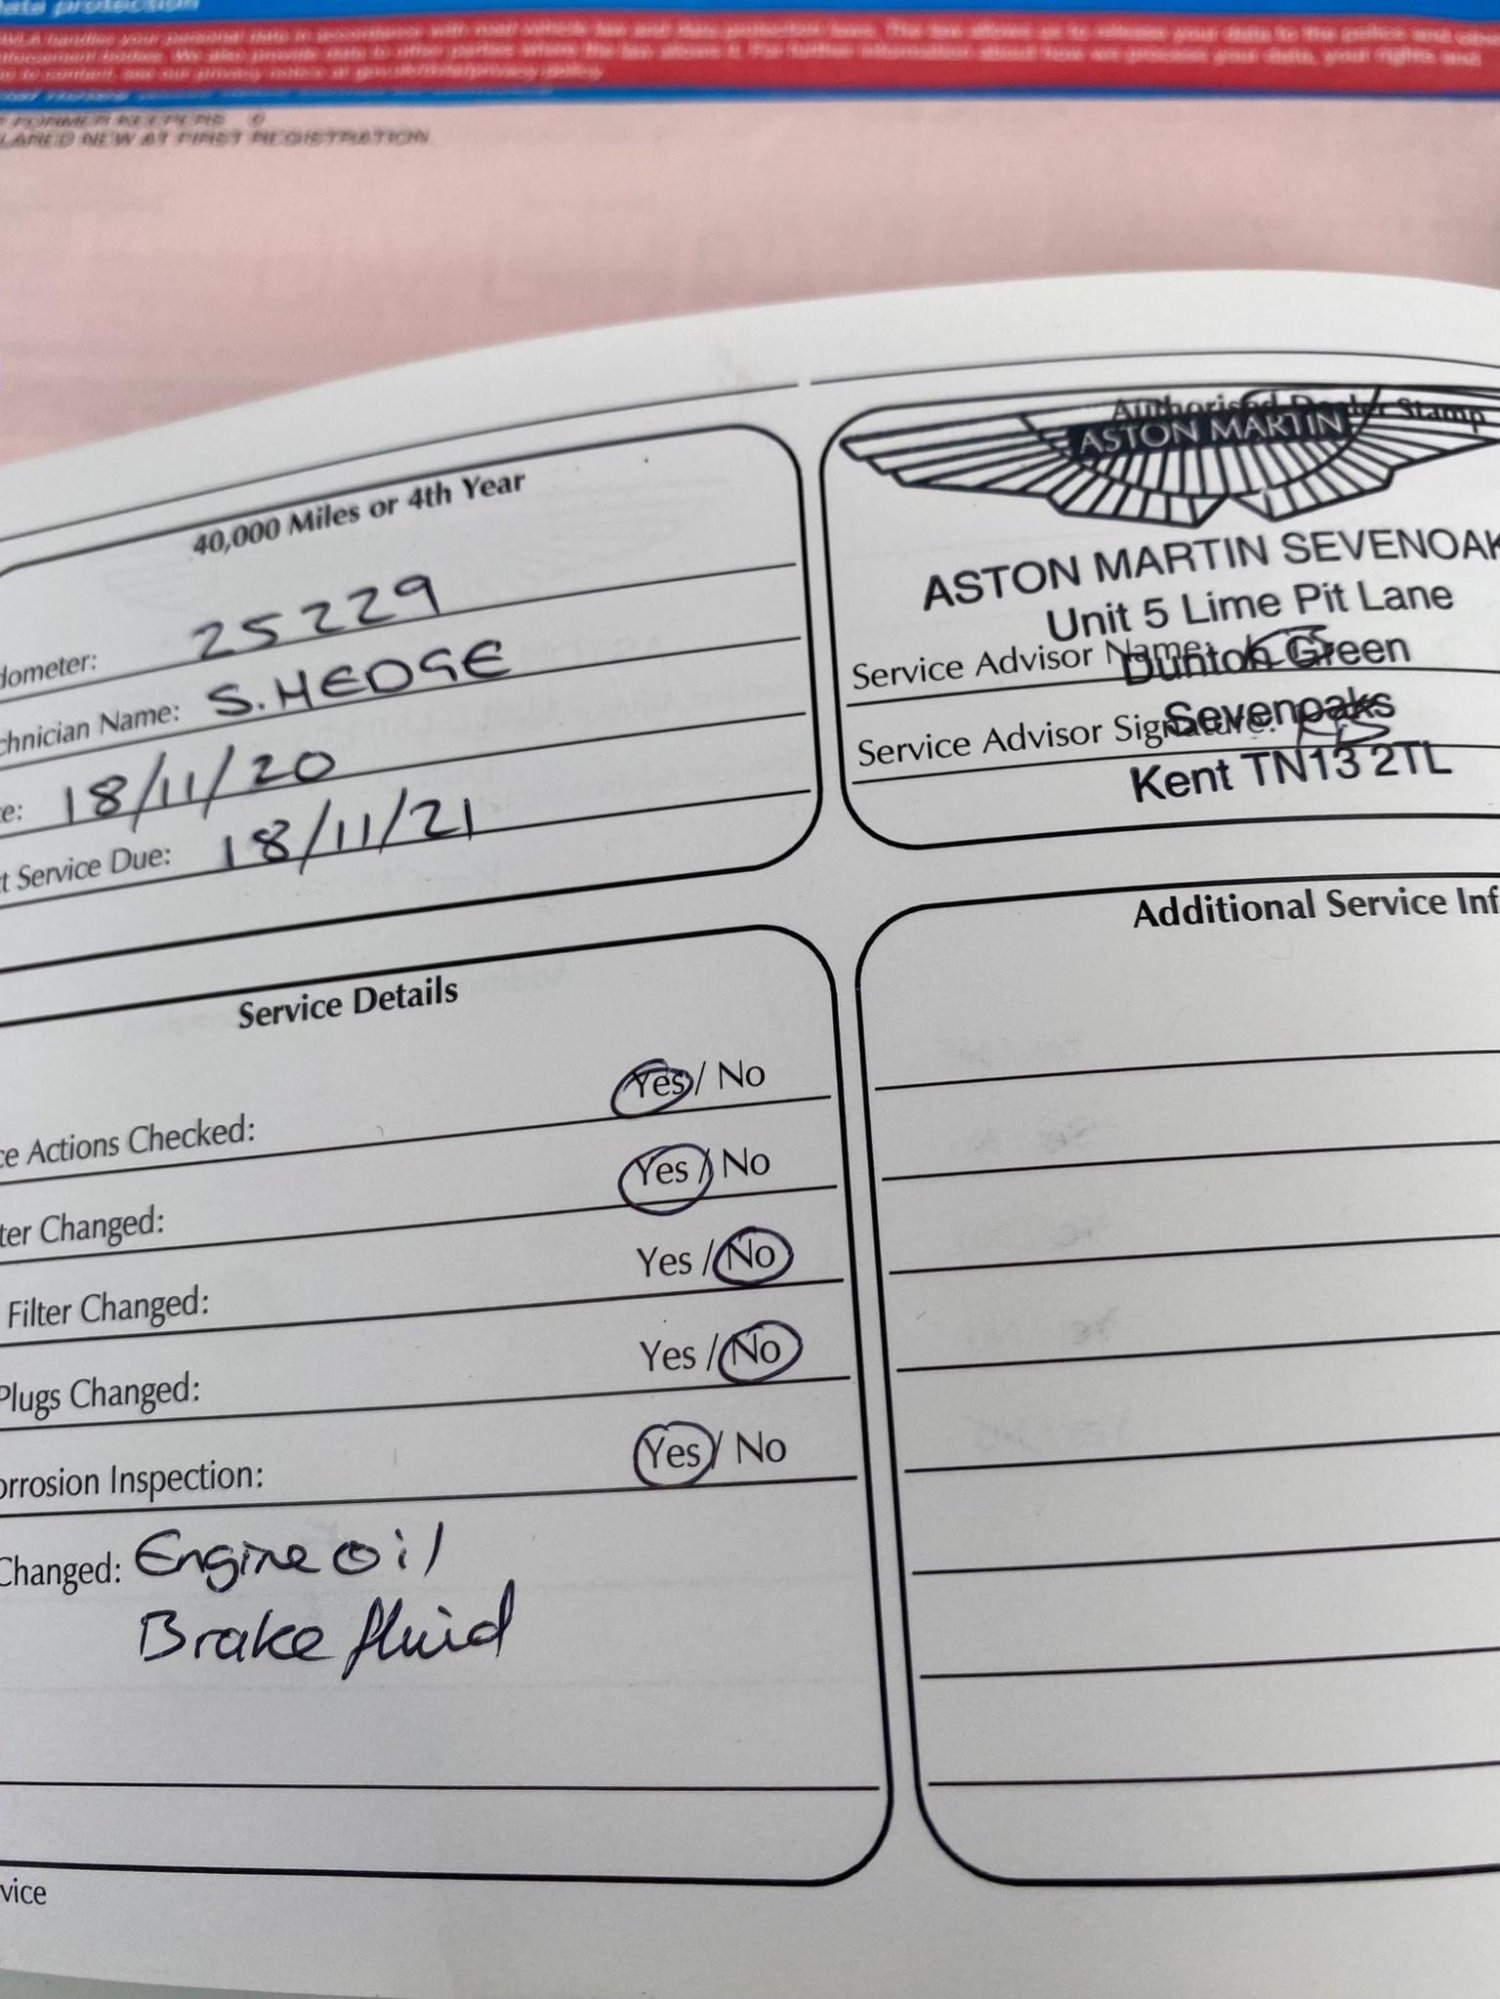 Data protection
DVLA handles your personal data in accordance with road vehicle tax and data protection laws. The law allows us to release your data to the police and other
enforcement bodies. We also provide data to other parties where the law allows it. For further information about how we process your data, your rights and
who to contact, see our privacy notice at gov.uk/dvla/privacy-policy
FORMER KEEPERS 0
LARED NEW AT FIRST REGISTRATION
40,000 Miles or 4th Year
dometer: 25229
chnician Name: S. HEDGE
te: 18/11/20
t Service Due: 18/11/21
Authorised Dealer Stamp
ASTON MARTIN
ASTON MARTIN SEVENOAK
Unit 5 Lime Pit Lane
Service Advisor Name:
Dunton Green
Service Advisor Signature:
Sevenoaks
Kent TN13 2TL
Service Details
ce Actions Checked: Yes / No
ter Changed: Yes / No
Filter Changed: Yes / No
Plugs Changed: Yes / No
orrosion Inspection: Yes / No
Changed: Engine oil
Brake fluid
vice
Additional Service Inf